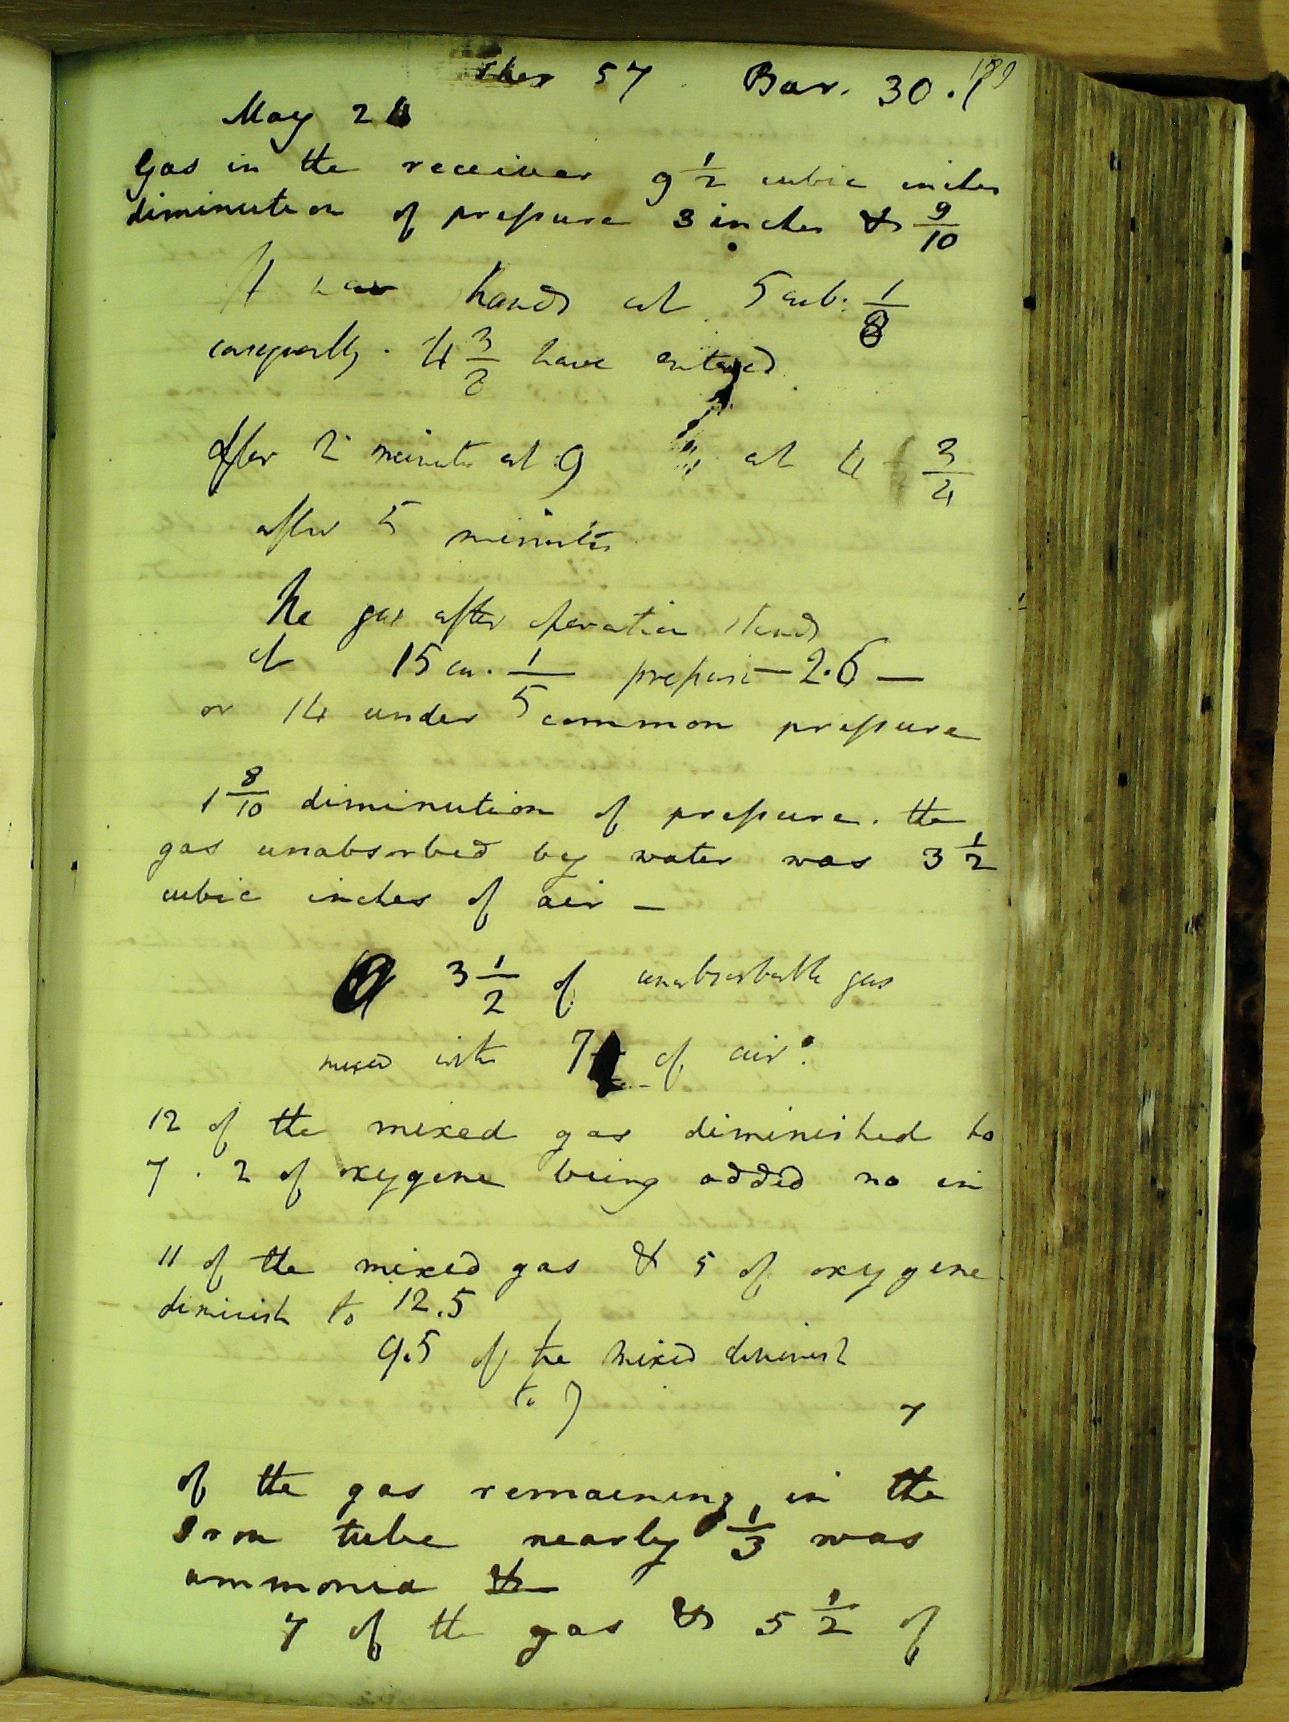 189
Ther 57 Bar. 30.1
May 26
Gas in the receiver 9 1/2 cubic inches
diminution of pressure 3 inches & 9/10
It now stands at 5 cub. 1/8
consequently. 4 3/8 have entered
After 2 minutes at 9 at 4 3/4
after 5 minutes
The gas after operation stands
at 15 cu. 1/5 pressure — 2.6 —
or 14 under common pressure
1 8/10 diminution of pressure. the
gas unabsorbed by water was 3 1/2
cubic inches of air —
3 1/2 of unabsorbable gas
mixed with 7 of air.
12 of the mixed gas diminished to
7 . 2 of oxygene being added no in
11 of the mixed gas & 5 of oxygene
diminish to 12.5
9.5 of the mixed diminish
to 7
7
of the gas remaining in the
Iron tube nearly 1/3 was
ammonia &
7 of the gas & 5 1/2 of